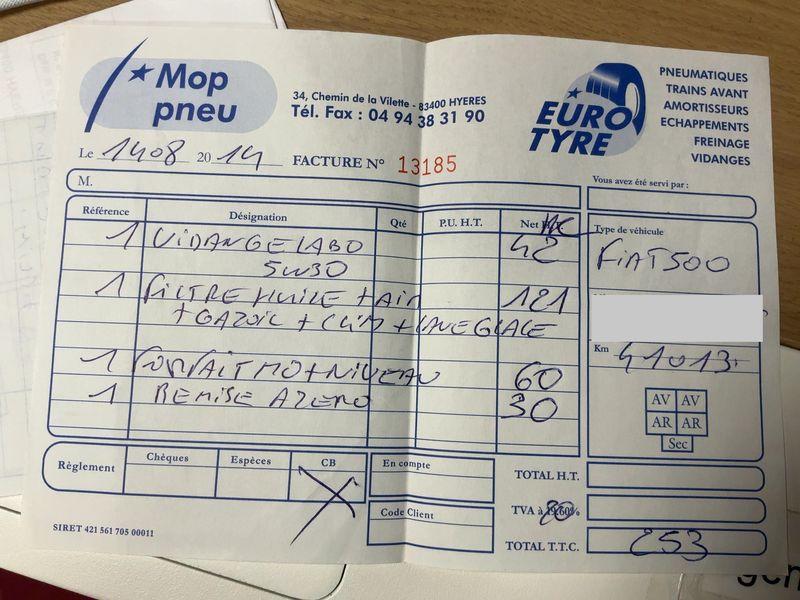 Mop pneu
34, Chemin de la Vilette - 83400 HYERES
Tél. Fax : 04 94 38 31 90
EURO TYRE
PNEUMATIQUES
TRAINS AVANT
AMORTISSEURS
ECHAPPEMENTS
FREINAGE
VIDANGES
Le 1408 2014 FACTURE N° 13185
M.
Vous avez été servi par :
Référence Désignation Qté P.U. H.T. Net
1 VIDANGE LABO 42
5W30
1 FILTRE HUILE + AIR 121
+ GAZOIL + CLIM + LAVE GLACE
1 FORFAIT MO + NIVEAU 60
1 REMISE A ZERO 30
Type de véhicule
FIAT 500
Km 41013
AV AV
AR AR
Sec
Règlement Chèques Espèces CB
En compte
Code Client
TOTAL H.T.
TVA à 20 %
TOTAL T.T.C. 253
SIRET 421 561 705 00011